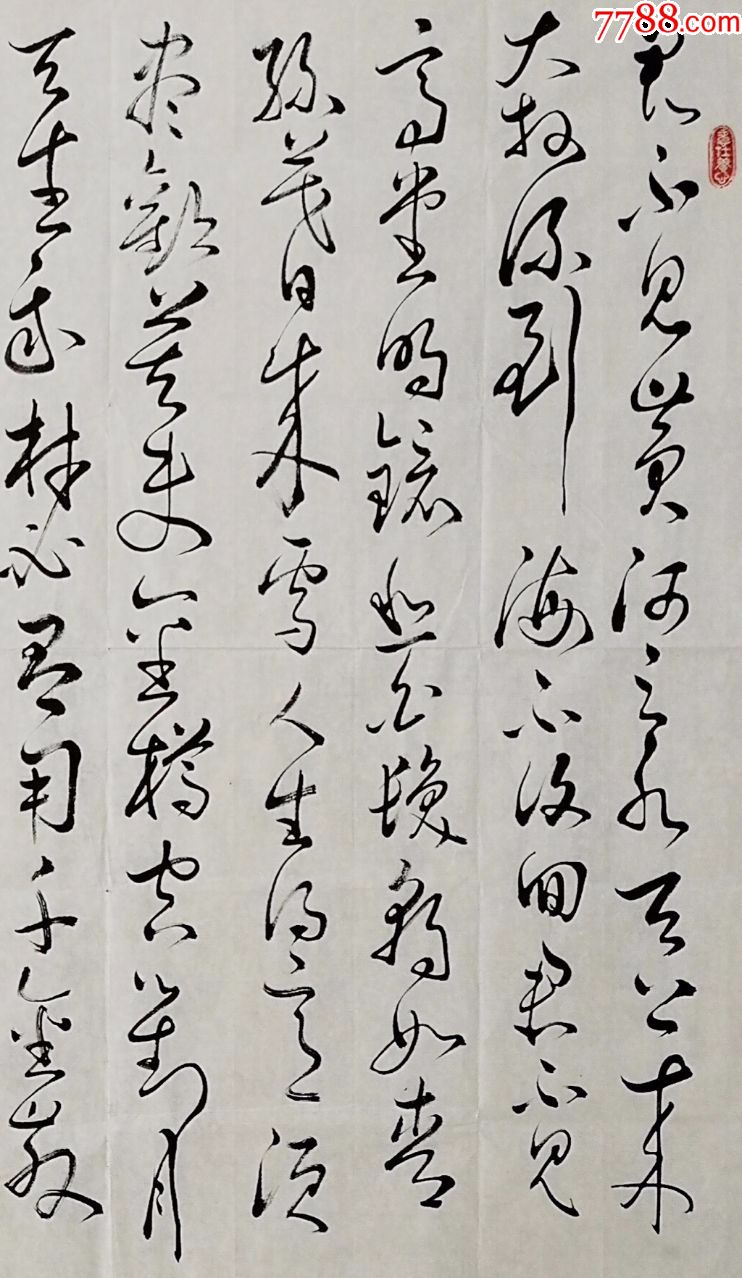 7788.com
君不見黄河之水天上来
奔流到海不復回君不見
高堂明鏡悲白髮朝如青
絲暮来雪人生得意須
盡歡莫使金樽空對月
天生我材必有用千金散